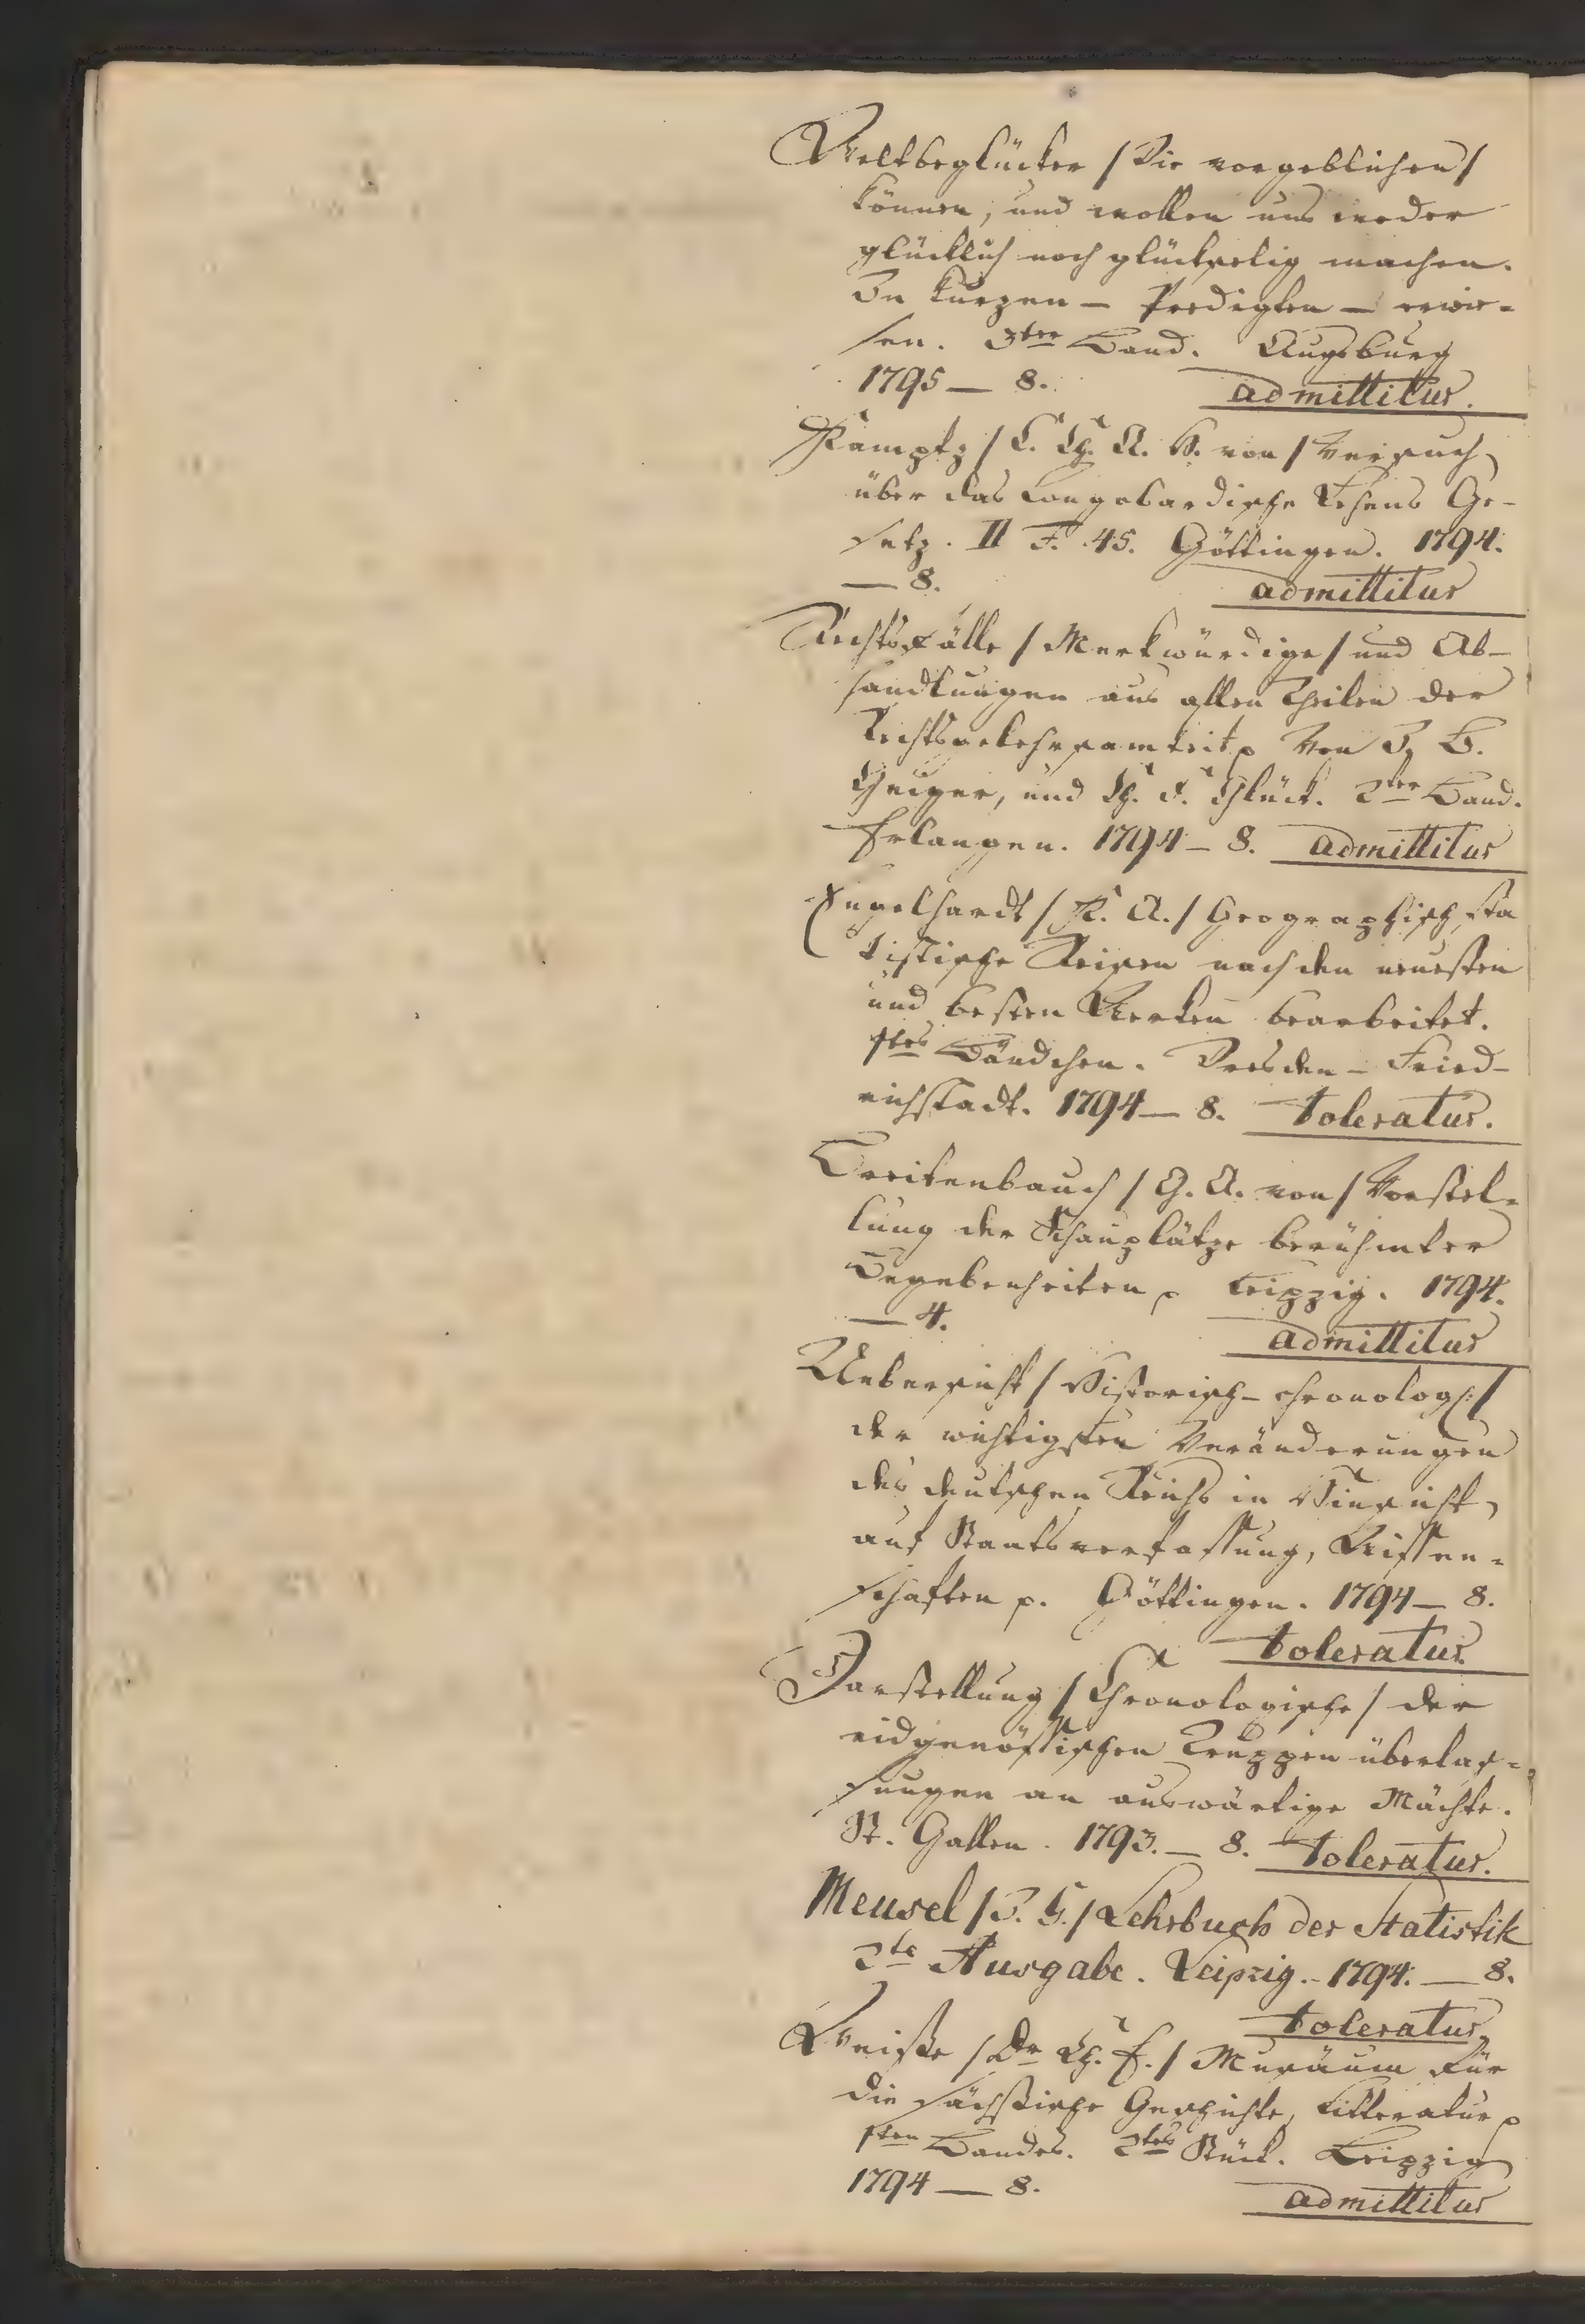 Weltbeglücker /Die vorgeblichen/
können, und wollen uns weder
glücklich noch glückselig machen.
In kurzen – Predigten – erwie-
sen. 3ter Band. Augsburg
1795 – 8. admittitur.
Kamptz / C. Ch. A. H. von / Versuch
über das Longobardische Lehens Ge-
setz. II F. 45. Göttingen. 1794.
– 8. admittitur
Rechtsfälle / Merkwürdige / und Ab-
handlungen aus allen Theilen der
Rechtsgelehrsamkeit p Von J. B.
Geiger, und Ch. F. Glück. 2ter Band.
Erlangen. 1794 – 8. admittitur
Engelhardt / K. A. / Geographisch sta
tistische Reisen nach den neuesten
und besten Werken bearbeitet.
1tes Bändchen. Dresden – Fried-
richstadt. 1794 – 8. toleratur.
Breitenbauch / G. A. von / Vorstel-
lung der Schauplätze berühmter
Begebenheiten p Leipzig. 1794.
– 4. admittitur
Uebersicht / Historisch – chronolog: /
der wichtigsten Veränderungen
des deutschen Reichs in Hinsicht
auf Staatsverfassung, Wissen-
schaften p. Göttingen. 1794 – 8.
toleratur
Darstellung / Chronologische / der
eidgenössischen Truppen überlas-
sungen an auswärtige Mächte.
St. Gallen. 1793. – 8. toleratur.
Meusel / J. G. / Lehrbuch der Statistik
2te Ausgabe. Leipzig. – 1794. – 8.
toleratur
Weiße / Dr Ch. E. / Musäum für
die sächsische Geschichte, Litteratur p
1ten Bandes. 2tes Stück. Leipzig
1794 – 8. admittitur